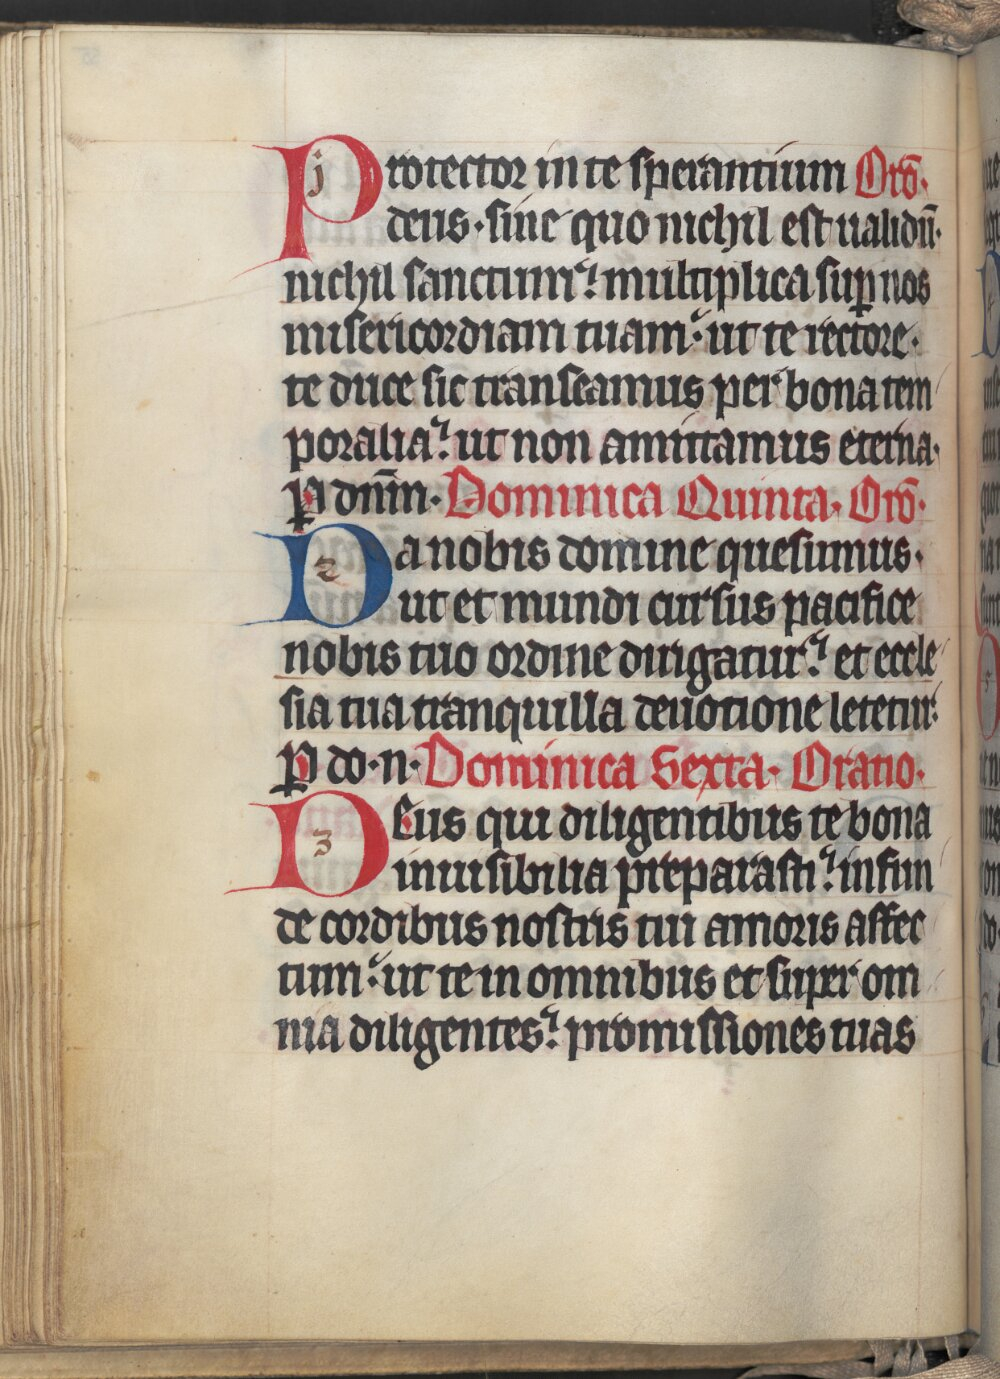 Protector in te sperantium Orō·
deus · sine quo nichil est ualidū·
nichil sanctum: multiplica suꝑ nos
misericordiam tuam· ut te rectore·
te duce sic transeamus per bona tem
poralia: ut non amittamus eterna·
P dnīm· Dominica Quinta· Orō·
Da nobis domine quesumus·
ut et mundi cursus pacifice
nobis tuo ordine dirigatur: et eccle
sia tua tranquilla deuotione letetur:
P do·n· Dominica Sexta· Oratio·
DEus qui diligentibus te bona
inuisibilia preparasti: infun
de cordibus nostris tui amoris affec
tum· ut te in omnibus et super om
nia diligentes: promissiones tuas
j
2
3